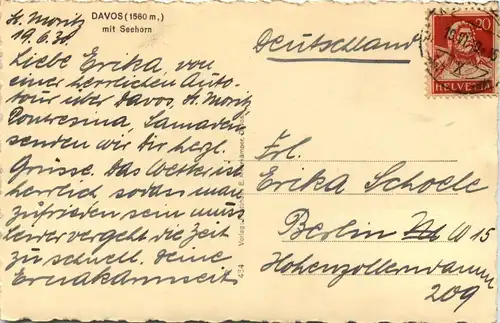 St. Moritz
19.6.30.
DAVOS (1560 m.)
mit Seehorn
Liebe Erika, von
einer herrlichen Auto-
tour über Davos, St. Moritz
Pontresina, Samaden
senden wir Dir herzl.
Grüsse. Das Wetter ist
herrlich sodass man
zufrieden sein muss
Leider vergeht die Zeit
zu schnell. Deine
Deutschland
20
HELVETIA
Frl.
Erika Schoele
Berlin W 15
Hohenzollerndamm
209
434